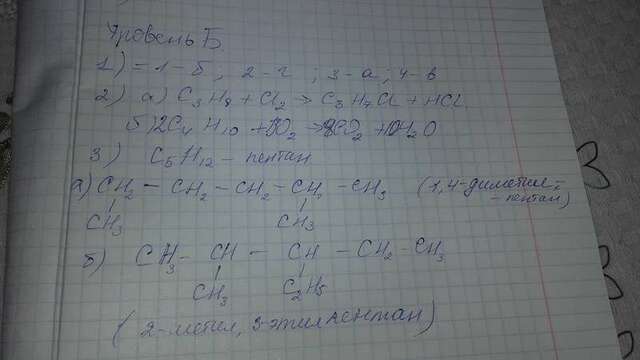 Уровень Б
1) = 1 - б, 2 - г; 3 - а; 4 - в
2) а) C3H8 + Cl2 → C3H7Cl + HCl
б) 2C4H10 + O2 → 8CO2 + H2O
3) C5H12 - пентан
а) CH2 - CH2 - CH2 - CH - CH3 (1,4-диметил-
CH3 CH3 - пентан)
б) CH3 - CH - CH - CH2 - CH3
CH3 C2H5
( 2-метил, 3 этил пентан)